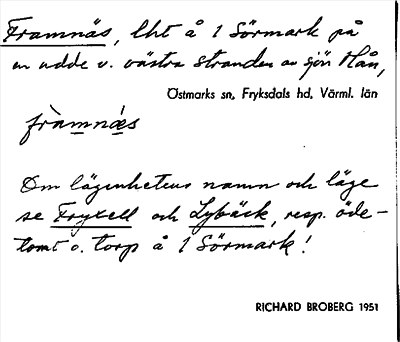 Framnäs, lht å 1 Sörmark på
en udde v. västra stranden av sjön Mån,
Östmarks sn, Fryksdals hd, Värml. län
fràmnä̀s
Om lägenhetens namn och läge
se Fryxell och Lybäck, resp. öde-
tomt o. torp å 1 Sörmark!
RICHARD BROBERG 1951